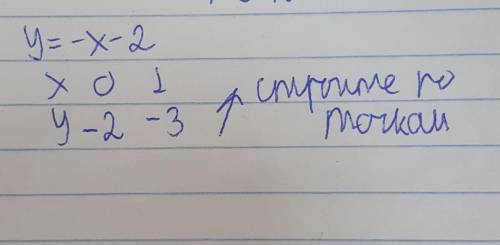 y=-x-2
x 0 1
y -2 -3 ↗ стройте по
точкам